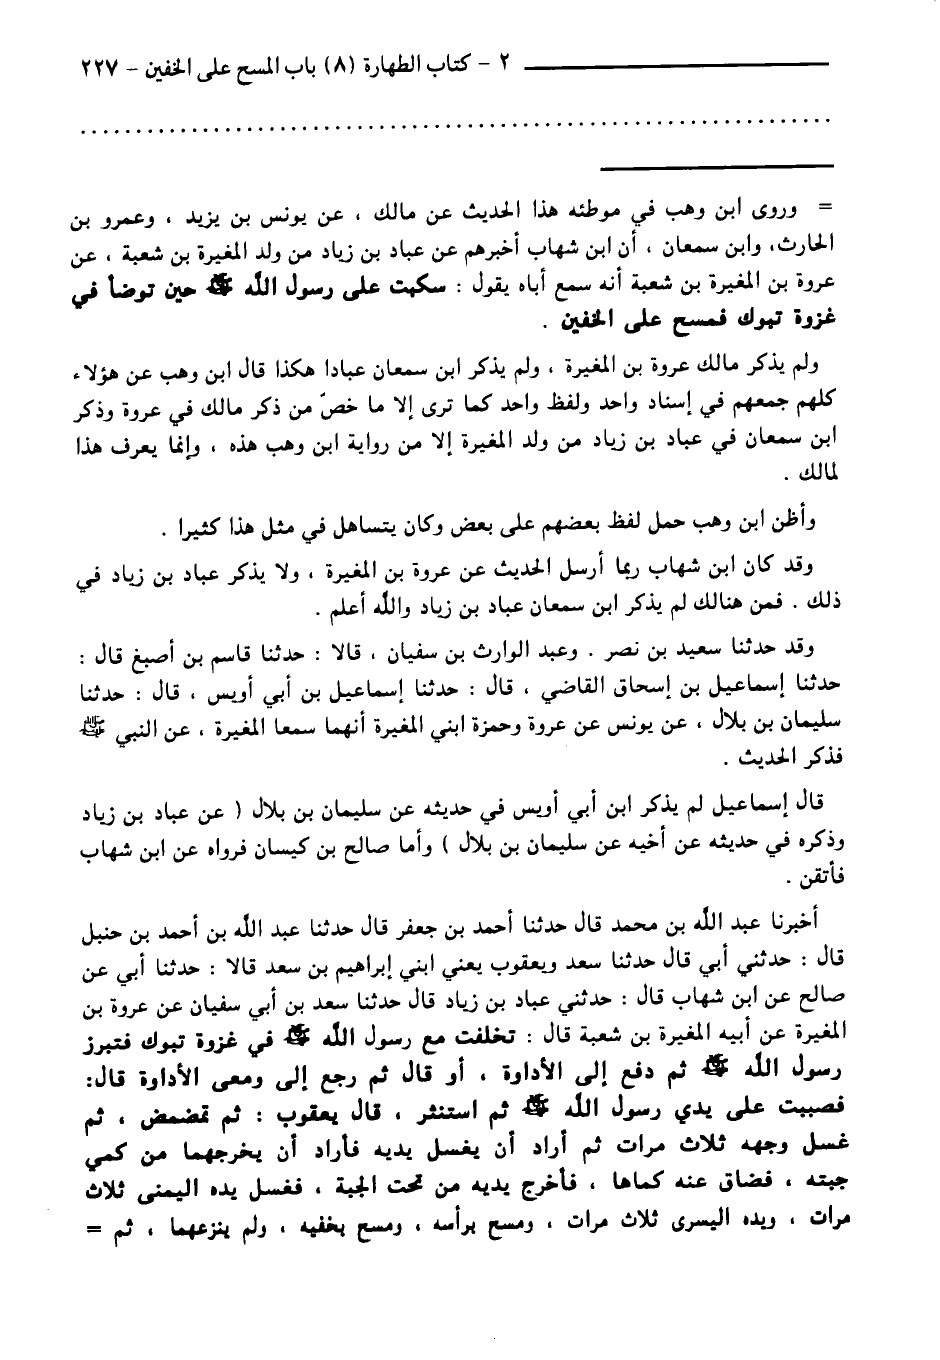 ٢ - كتاب الطهارة (٨) باب المسح على الخفين - ٢٢٧
= وروى ابن وهب في موطئه هذا الحديث عن مالك ، عن يونس بن يزيد ، وعمرو بن
الحارث، وابن سمعان ، أن ابن شهاب أخبرهم عن عباد بن زياد من ولد المغيرة بن شعبة ، عن
عروة بن المغيرة بن شعبة أنه سمع أباه يقول : سكبت على رسول الله ﷺ حين توضأ في
غزوة تبوك فمسح على الخفين .
ولم يذكر مالك عروة بن المغيرة ، ولم يذكر ابن سمعان عبادا هكذا قال ابن وهب عن هؤلاء
كلهم جمعهم في إسناد واحد ولفظ واحد كما ترى إلا ما خصّ من ذكر مالك في عروة وذكر
ابن سمعان في عباد بن زياد من ولد المغيرة إلا من رواية ابن وهب هذه ، وإنما يعرف هذا
لمالك .
وأظن ابن وهب حمل لفظ بعضهم على بعض وكان يتساهل في مثل هذا كثيرا .
وقد كان ابن شهاب ربما أرسل الحديث عن عروة بن المغيرة ، ولا يذكر عباد بن زياد في
ذلك . فمن هنالك لم يذكر ابن سمعان عباد بن زياد والله أعلم .
وقد حدثنا سعيد بن نصر . وعبد الوارث بن سفيان ، قالا : حدثنا قاسم بن أصبغ قال :
حدثنا إسماعيل بن إسحاق القاضي ، قال : حدثنا إسماعيل بن أبي أويس ، قال : حدثنا
سليمان بن بلال ، عن يونس عن عروة وحمزة ابني المغيرة أنهما سمعا المغيرة ، عن النبي ﷺ
فذكر الحديث .
قال إسماعيل لم يذكر ابن أبي أويس في حديثه عن سليمان بن بلال ( عن عباد بن زياد
وذكره في حديثه عن أخيه عن سليمان بن بلال ) وأما صالح بن كيسان فرواه عن ابن شهاب
فأتقن .
أخبرنا عبد الله بن محمد قال حدثنا أحمد بن جعفر قال حدثنا عبد الله بن أحمد بن حنبل
قال : حدثني أبي قال حدثنا سعد ويعقوب يعني ابني إبراهيم بن سعد قالا : حدثنا أبي عن
صالح عن ابن شهاب قال : حدثني عباد بن زياد قال حدثنا سعد بن أبي سفيان عن عروة بن
المغيرة عن أبيه المغيرة بن شعبة قال : تخلفت مع رسول الله ﷺ في غزوة تبوك فتبرز
رسول الله ﷺ ثم دفع إلى الأداوة ، أو قال ثم رجع إلى ومعى الأداوة قال:
فصببت على يدي رسول الله ﷺ ثم استنثر ، قال يعقوب : ثم تمضمض ، ثم
غسل وجهه ثلاث مرات ثم أراد أن يغسل يديه فأراد أن يخرجهما من كمي
جبته ، فضاق عنه كماها ، فأخرج يديه من تحت الجبة ، فغسل يده اليمنى ثلاث
مرات ، ويده اليسرى ثلاث مرات ، ومسح برأسه ، ومسح بخفيه ، ولم ينزعهما ، ثم =